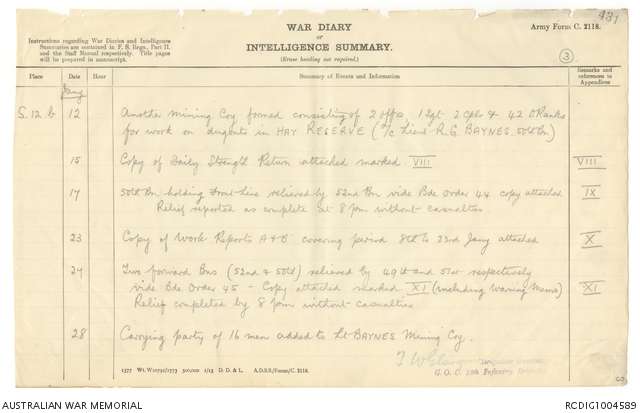 431
WAR DIARY
or
INTELLIGENCE SUMMARY.
(Erase heading not required.)
Army Form C. 2118.
Instructions regarding War Diaries and Intelligence
Summaries are contained in F. S. Regs., Part II.
and the Staff Manual respectively. Title pages
will be prepared in manuscript.
3
Place Date Hour Summary of Events and Information Remarks and references to Appendices
Jany
S.12.b 12 Another Mining Coy formed consisting of 2 offs, 1 Sgt 2 Cpls & 42 O Ranks
for work on dugouts in HAY RESERVE (O/C Lieut R.G. BAYNES 50th Bn)
15 Copy of Daily Strength Return attached marked VIII VIII
17 50th Bn holding Front Line relieved by 52nd Bn vide Bde Order 44 copy attached IX
Relief reported as complete at 8 pm without casualties
23 Copy of Work Reports A & B covering period 8th to 23rd Jany attached X
24 Two forward Bns (52nd & 50th) relieved by 49th and 51st respectively
vide Bde Order 45 - Copy attached marked XI (including Warning Memo) XI
Relief completed by 8 pm without casualties
28 Carrying party of 16 men added to Lt BAYNES Mining Coy.
Brigadier General
G.O.C. 13th Infantry Brigade
1577 Wt. W10791/1773 500,000 1/15 D. D. & L. A.D.S.S./Forms/C. 2118.
AUSTRALIAN WAR MEMORIAL
RCDIG1004589